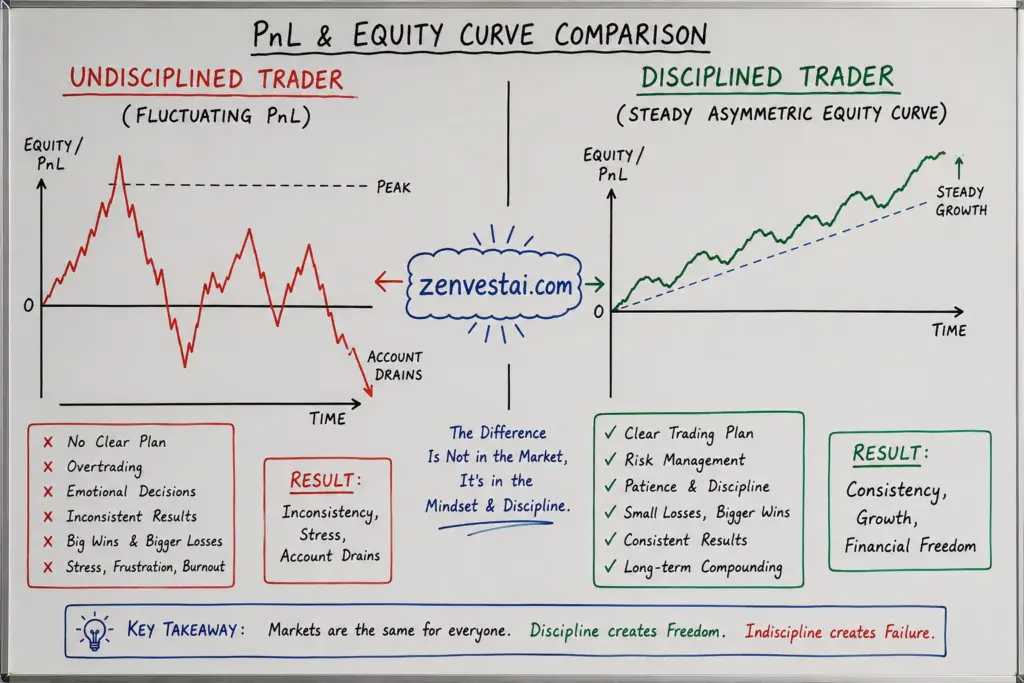 PnL & EQUITY CURVE COMPARISON
UNDISCIPLINED TRADER
(FLUCTUATING PnL)
EQUITY/
PnL
PEAK
0
ACCOUNT
DRAINS
TIME
X No Clear Plan
X Overtrading
X Emotional Decisions
X Inconsistent Results
X Big Wins & Bigger Losses
X Stress, Frustration, Burnout
RESULT:
Inconsistency,
Stress,
Account Drains
zenvestai.com
The Difference
Is Not in the Market,
It's in the
Mindset & Discipline.
DISCIPLINED TRADER
(STEADY ASYMMETRIC EQUITY CURVE)
EQUITY/
PnL
STEADY
GROWTH
0
TIME
✓ Clear Trading Plan
✓ Risk Management
✓ Patience & Discipline
✓ Small Losses, Bigger Wins
✓ Consistent Results
✓ Long-term Compounding
RESULT:
Consistency,
Growth,
Financial Freedom
KEY TAKEAWAY: Markets are the same for everyone. Discipline creates Freedom. Indiscipline creates Failure.